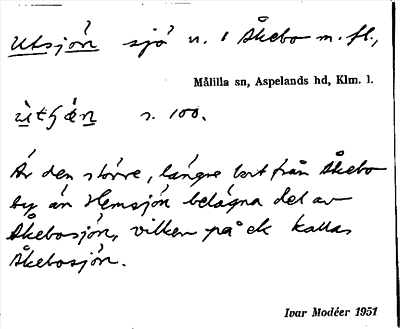 Utsjön sjö n. i Åkebo m. fl.,
Målilla sn, Aspelands hd, Klm. l.
s. 100.
Är den större, längre bort från Åkebo
by än Hemsjön belägna del av
Åkebosjön, vilken på ek kallas
Åkebosjön.
Ivar Modéer 1951